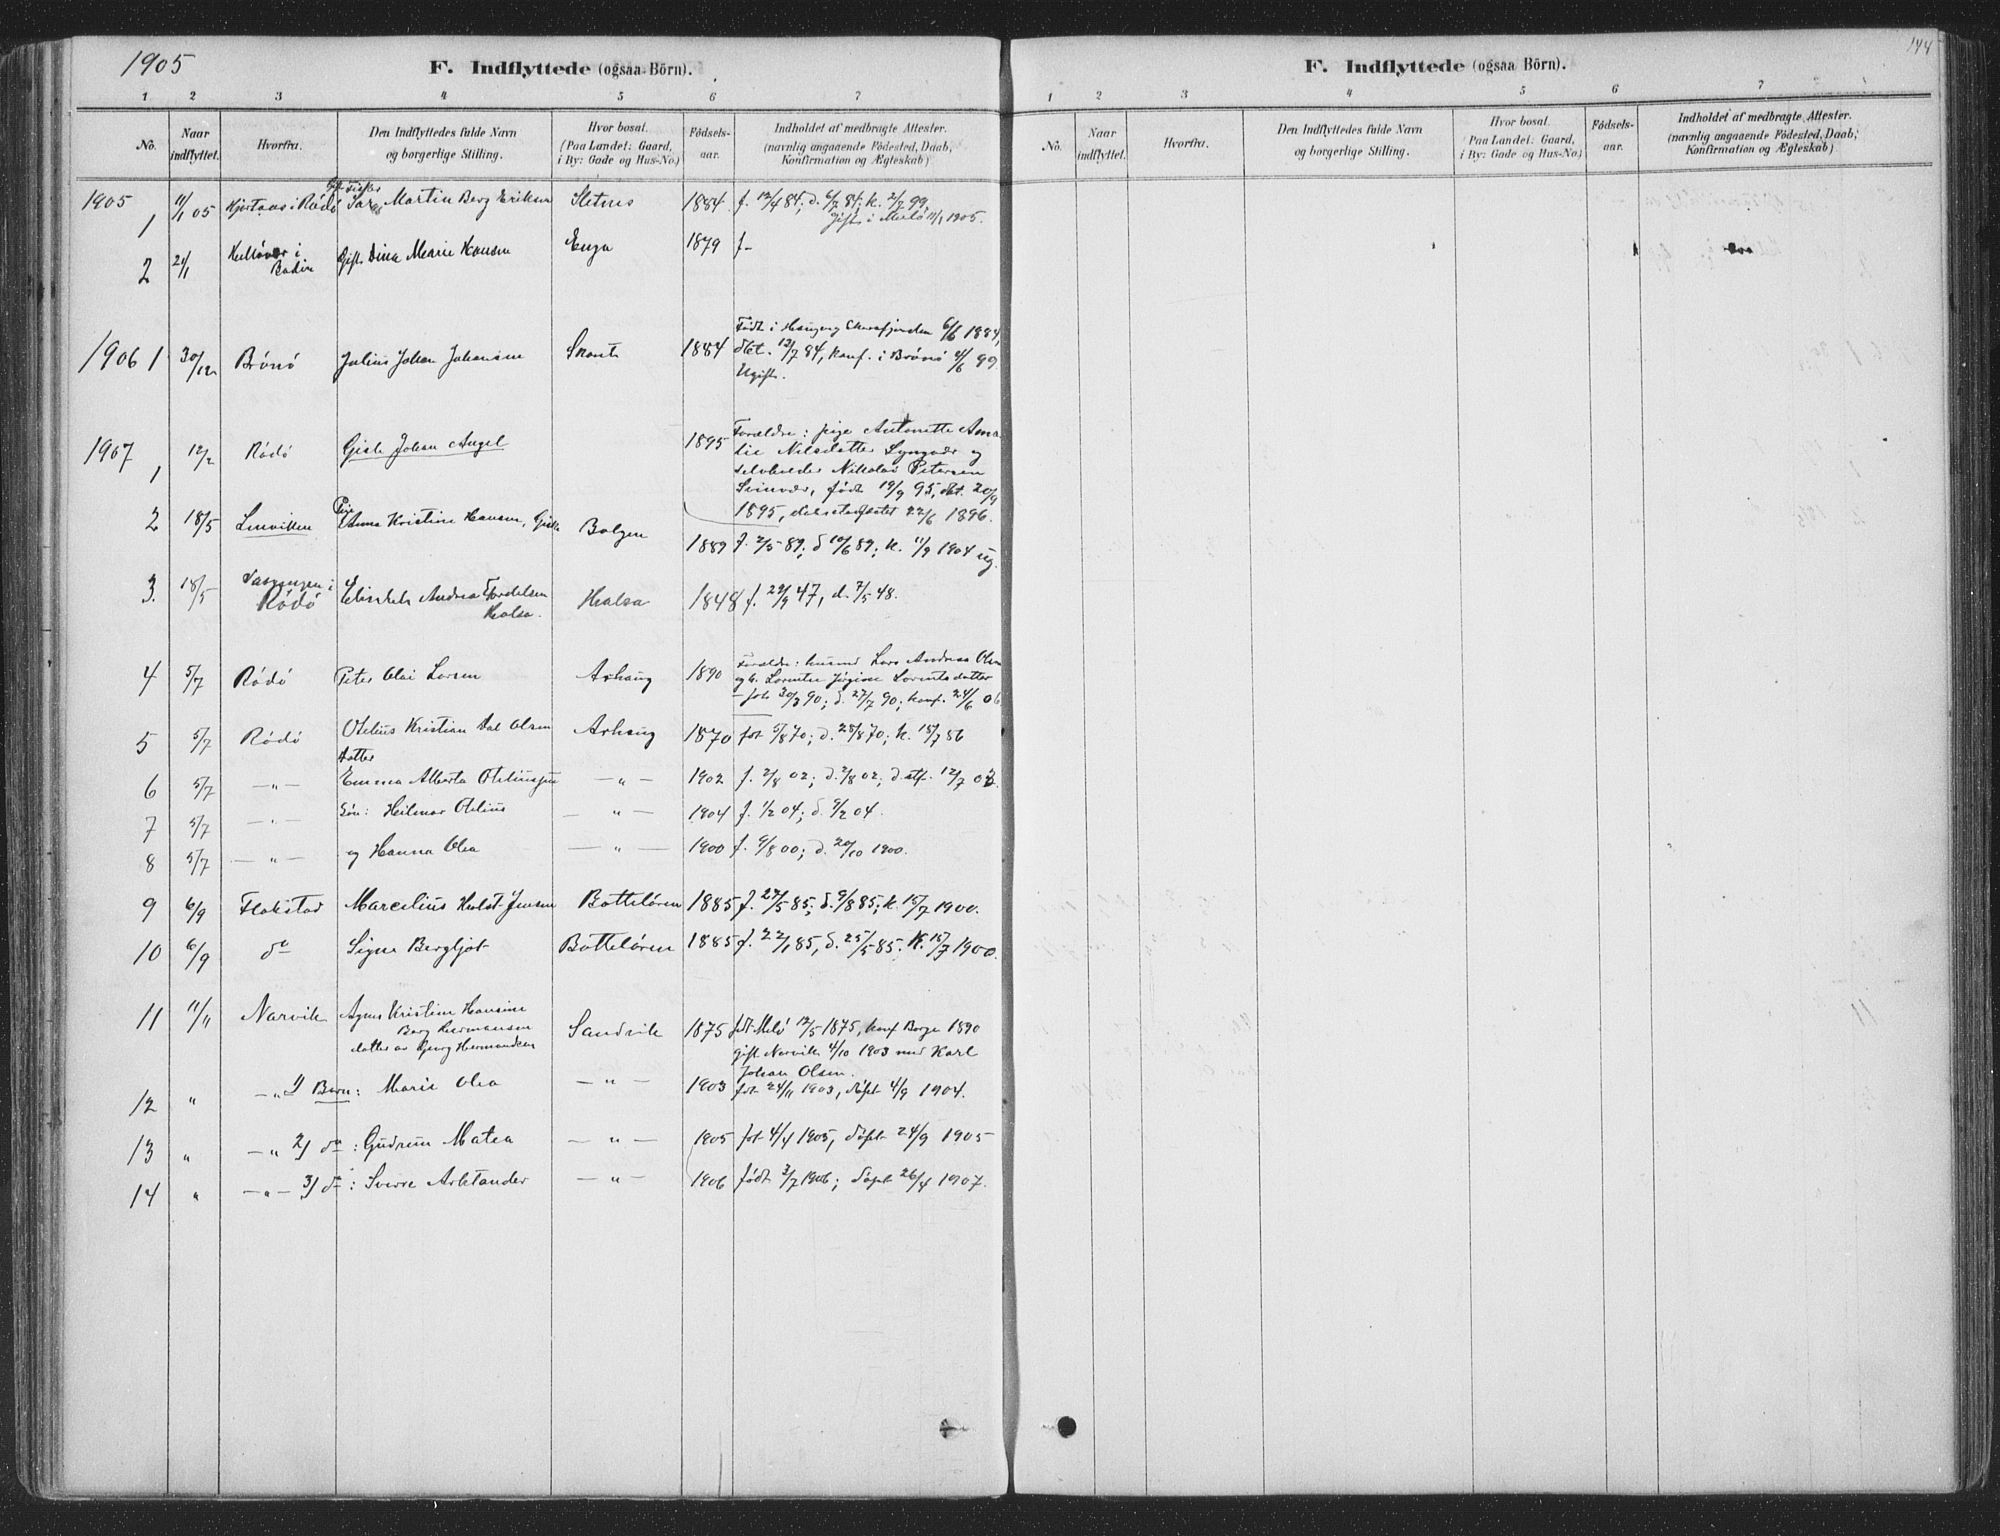 1905
F. Indflyttede (ogsaa Börn).
1 2 3 4 5 6 7
No. Naar indflyttet. Hvorfra. Den Indflyttedes fulde Navn og borgerlige Stilling. Hvor bosat. (Paa Landet: Gaard, i By: Gade og Hus-No.) Födsels-aar. Indholdet af medbragte Attester. (navnlig angaaende Födested, Daab, Konfirmation og Ægteskab)
1905 1 11/1 05 i Rödö Martin Berg 1884 f. 12/4 84; d. 6/7 84; k. 2/7 99.
gift i Melö 1905.
2 21/1 i Bodin Gift Dina Marie Hansen Enga 1879 f-
1906 1 30/12 Brönö Julius Johan Johansen 1884 Födt i 6/6 1884,
döbt. 12/7 84, konf. i Brönö 4/6 99.
Ugift.
1907 1 12/2 Rödö Johan Angel 1895 Forældre: pige Antonette Ama-
lie Nilsdatter og
Nikolai Petersen
födt 19/9 95, döbt. 20/9
1895, 22/6 1896.
2 18/5 Anna Kristine Hansen, Bolgen 1889 f. 2/5 89; d 10/6 89; k. 11/9 1904 ug.
3. 18/5 i Rödö Andrea Halsa. Halsa 1848 f. 29/9 47, d. 7/5 48.
4 5/7 Rödö Peter Olai Larsen Arhaug 1890 Forældre: husmd Lars Andreas Olsen
og h. Jörgine Lorentsdatter
30/3 90; d. 27/7 90; konf. 24/6 06
5 5/7 Rödö Otelius Kristian Olsen Arhaug 1870 föt 5/8 70; d. 28/8 70; k. 15/7 86
Datter
6 5/7 —„— Emma Alberta —„— 1902 f. 2/8 02; d. 2/8 02; d. stf. 12/7 03
7 5/7 —„— Sön: Hilmar Otelius —„— 1904 f. 1/2 04; d. 9/2 04.
8 5/7 —„— og Hanna Olea —„— 1900 f. 9/8 00; d. 20/10 1900.
9 6/9 Flakstad Marcelius Holst Jensen Botteloren 1885 f. 27/5 85; d. 9/8 85; k. 15/7 1900.
10 6/9 do Signe Bergljot Botteloren 1885 f. 22/1 85, d. 25/5 85. K. 15/7 1900.
11 11/11 Narvik Agnes Kristine Hansine
Berg Hermansen
datter av Georg Hermandsen Sandvik 1875 födt Melö 12/5 1875, konf Borge 1890
gift Narvik 4/10 1903 med Karl
Johan Olsen.
12 „ —„ 1) Barn: Marie Olea —„— 1903 föt 24/11 1903, döpt 4/9 1904.
13 „ —„ 2) do: Gudrun Matea —„— 1905 föt 4/4 1905, döpt 24/9 1905
14 „ —„— 3) do: Sverre Arktander —„— 1906 födt 3/7 1906; döpt 26/4 1907.
144
F. Indflyttede (ogsaa Börn).
1 2 3 4 5 6 7
No. Naar indflyttet. Hvorfra. Den Indflyttedes fulde Navn og borgerlige Stilling. Hvor bosat. (Paa Landet: Gaard, i By: Gade og Hus-No.) Födsels-aar. Indholdet af medbragte Attester. (navnlig angaaende Födested, Daab, Konfirmation og Ægteskab)